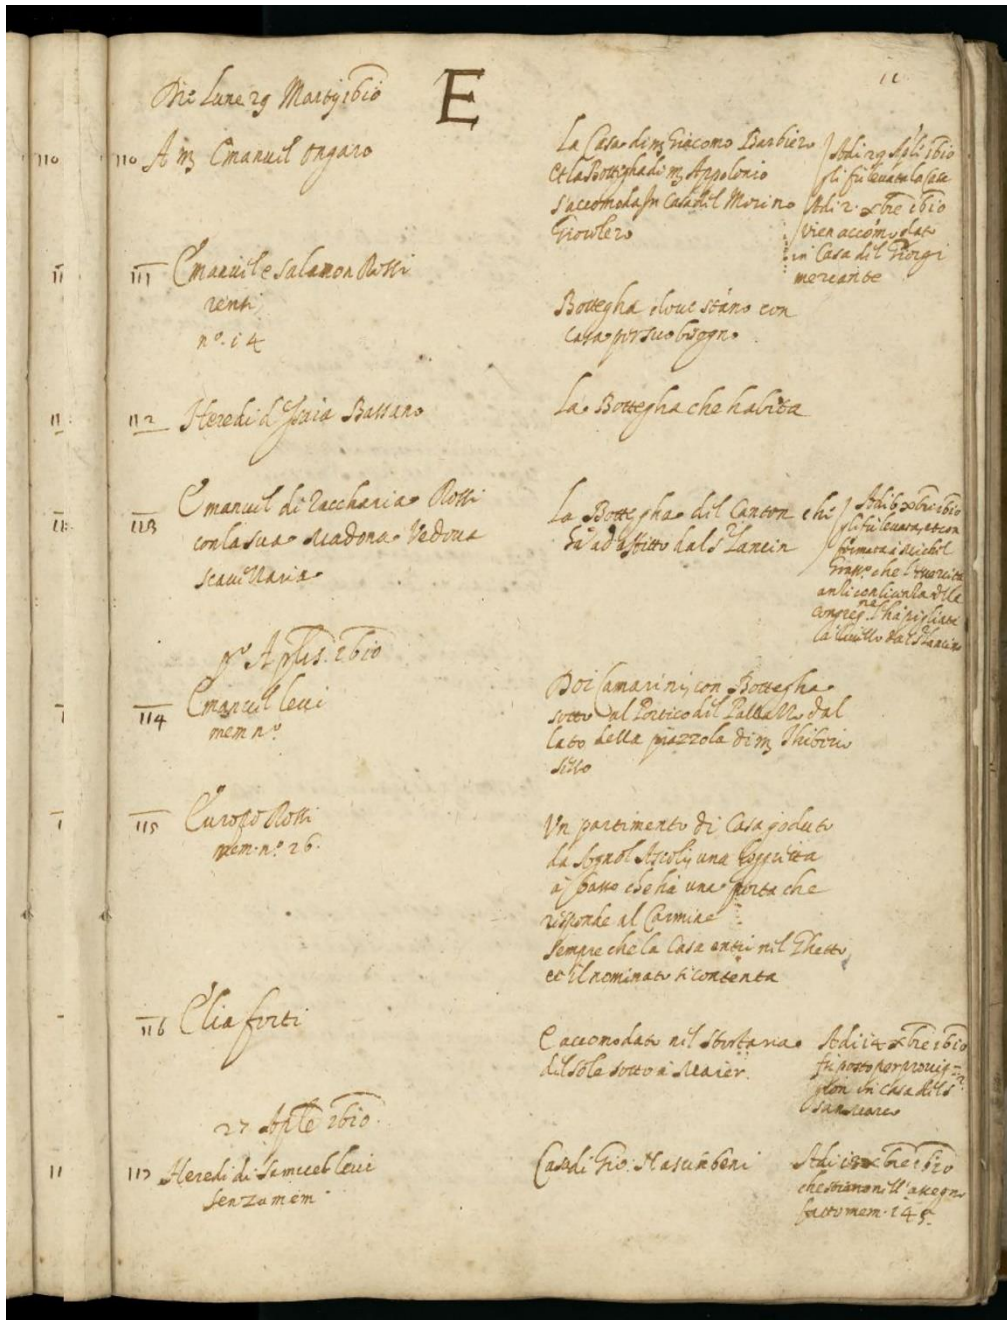 11
Die Lune 29 Martij 1610
E
110
110 A m Emanuil Ongaro
La Casa di m Giacomo Barbiero
et la Bottegha di m Appolonio
s'accomoda In Casa dil Morino
Adi 29 Apli 1610
gli fu levata la
Adi 2 xbre 1610
vien accomodato
in Casa dil Giorgi
mercante
111 Emanuil e Salamon Rossi
renti
nº. 14
Bottegha dove stano con
Casa per suo bisogno
112 Heredi d'Isaia Bassano
La Bottegha che habita
113 Emanuil di Zaccharia Rossi
con la sua Madona Vedova
La Bottegha dil Canton che
ha ad affitto dal Sr Lancin
Adi 6 xbre 1610
gli fu levata, et con
firmata à Michel
Grasso che
congreg.ne l'ha pigliata
p.º Aplis. 1610
114 Emanuil levi
mem nº
Doi Camarini, con Bottegha
sotto al Portico dil Pallazzo dal
lato della piazzola di m Thiberio
115 Europo Rossi
mem. nº. 26.
Un partimento di Casa goduto
da Ascoli, una loggietta
à basso che ha una porta che
risponde al Carmine
Sempre che la Casa entri nil Ghetto
et il nominato si contenta
116 Elia forti
E accomodato nil
dil Sole sotto à Maier.
Adi 14 xbre 1610
fu posto per provis
gion in casa dil S
sanmarco
27 Aple 1610
117 Heredi di Samuel levi
senza mem.
Casa di Gio: Masimbeni
Adi 18 xbre 1610
che stiano nill'assegno
fatto mem. 145.